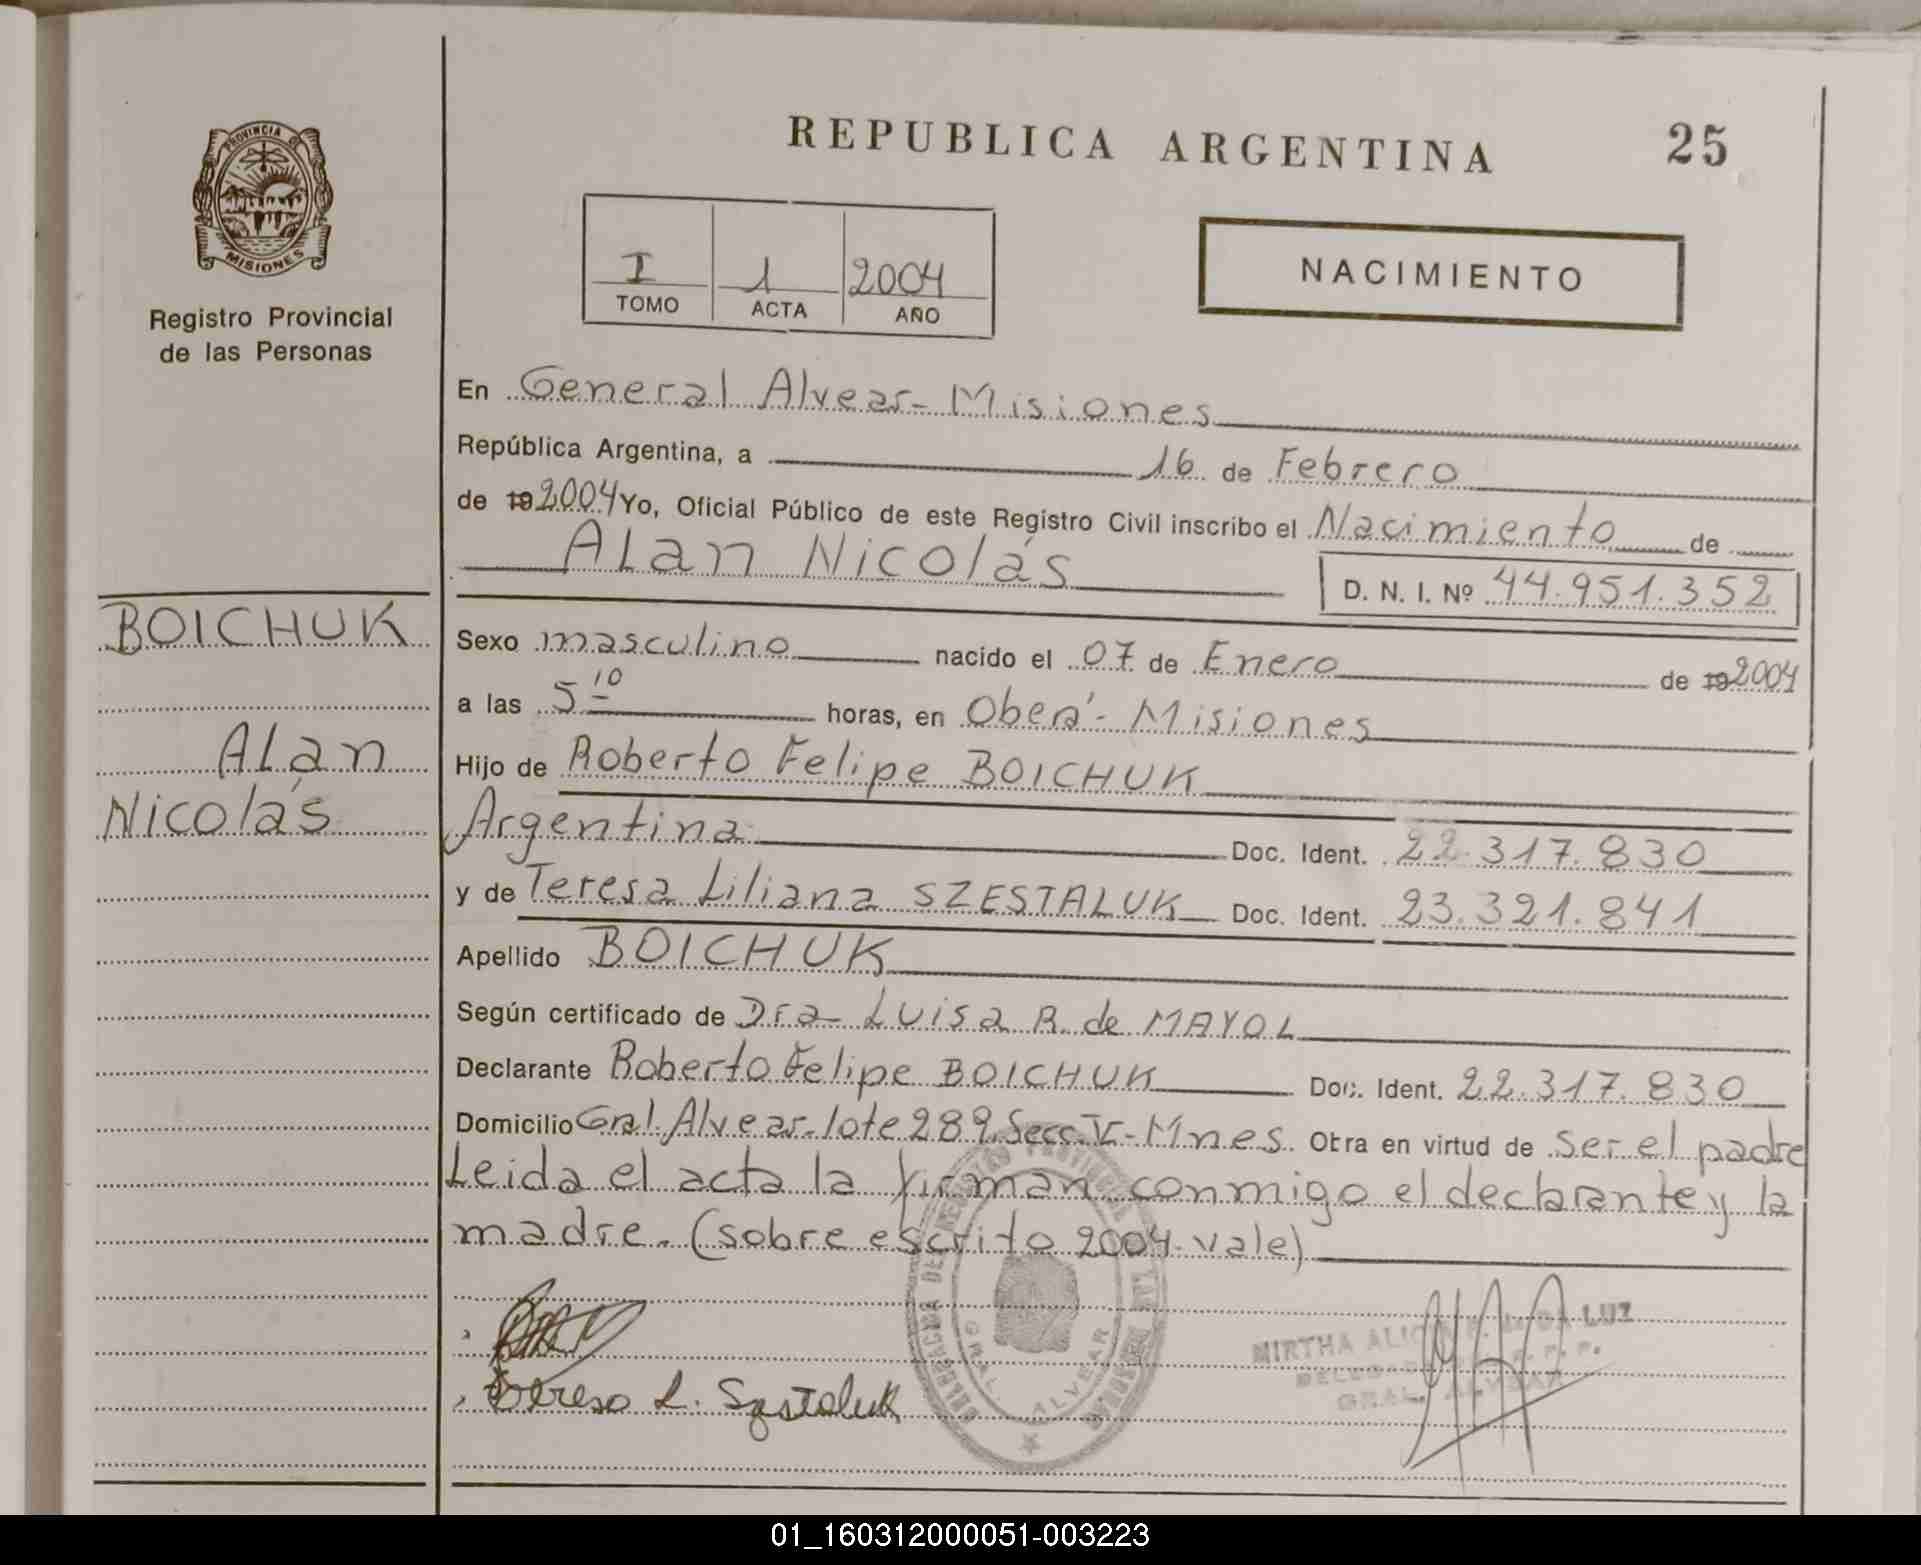 REPUBLICA ARGENTINA 25
PROVINCIA DE
MISIONES
Registro Provincial
de las Personas
I 1 2004
TOMO ACTA AÑO
NACIMIENTO
En General Alvear - Misiones
República Argentina, a 16 de Febrero
de 19 2004 Yo, Oficial Público de este Registro Civil inscribo el Nacimiento de
Alan Nicolás
D. N. I. Nº 44.951.352
BOICHUK
Alan
Nicolás
Sexo masculino nacido el 07 de Enero de 19 2004
a las 5 10 horas, en Oberá - Misiones
Hijo de Roberto Felipe BOICHUK
Argentina Doc. Ident. 22.317.830
y de Teresa Liliana SZESTALUK Doc. Ident. 23.321.841
Apellido BOICHUK
Según certificado de Dra - Luisa R. de MAYOL
Declarante Roberto Felipe BOICHUK Doc. Ident. 22.317.830
Domicilio Gral. Alvear - lote 289. Secc. V - Mnes. Otra en virtud de ser el padre
Leida el acta la firman conmigo el declarante y la
madre. (sobre escrito 2004. vale)
Teresa L. Szestaluk
DELEGACION DEL REGISTRO PROVINCIAL DE LAS PERSONAS
GRAL. ALVEAR
MIRTHA ALICIA F. de DA LUZ
R. P. P.
GRAL. ALVEAR
01_160312000051-003223